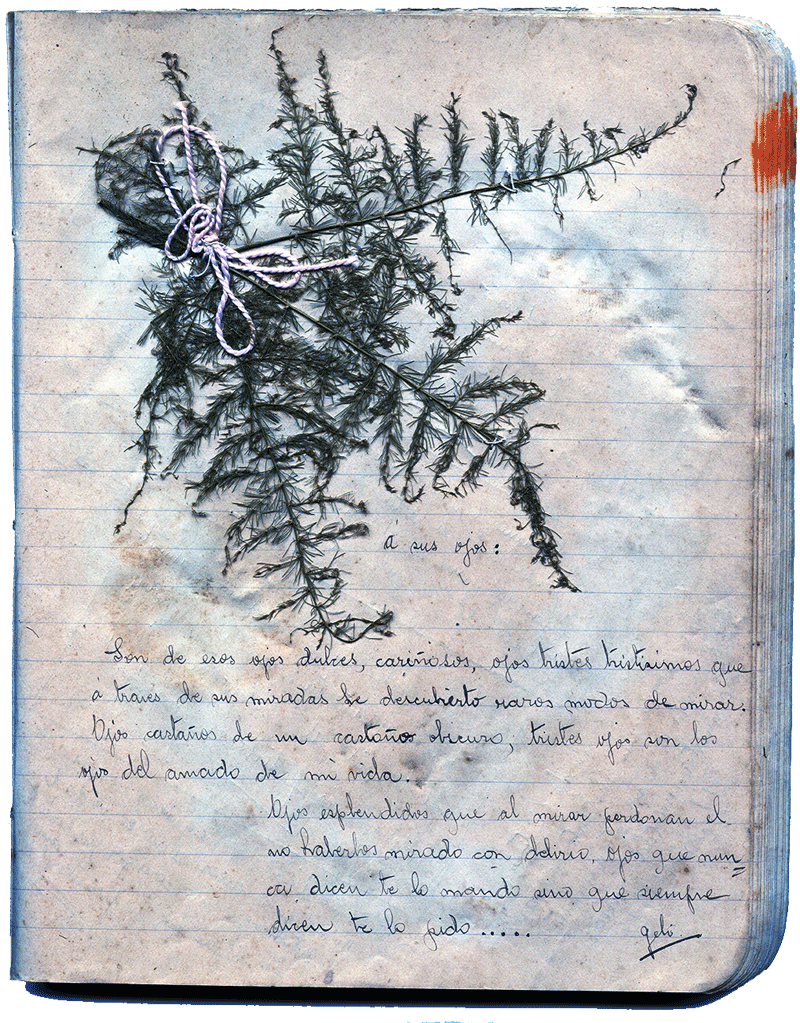 á sus ojos:
Son de esos ojos dulces, cariñosos, ojos tristes tristisimos que
á traves de sus miradas he descubierto raros modos de mirar.
Ojos castaños de un castaño obscuro, tristes ojos son los
ojos del amado de mi vida.
Ojos esplendidos que al mirar perdonan el
no haberlos mirado con delirio, ojos que nun=
ca dicen te lo mando sino que siempre
dicen te lo pido.....
geló